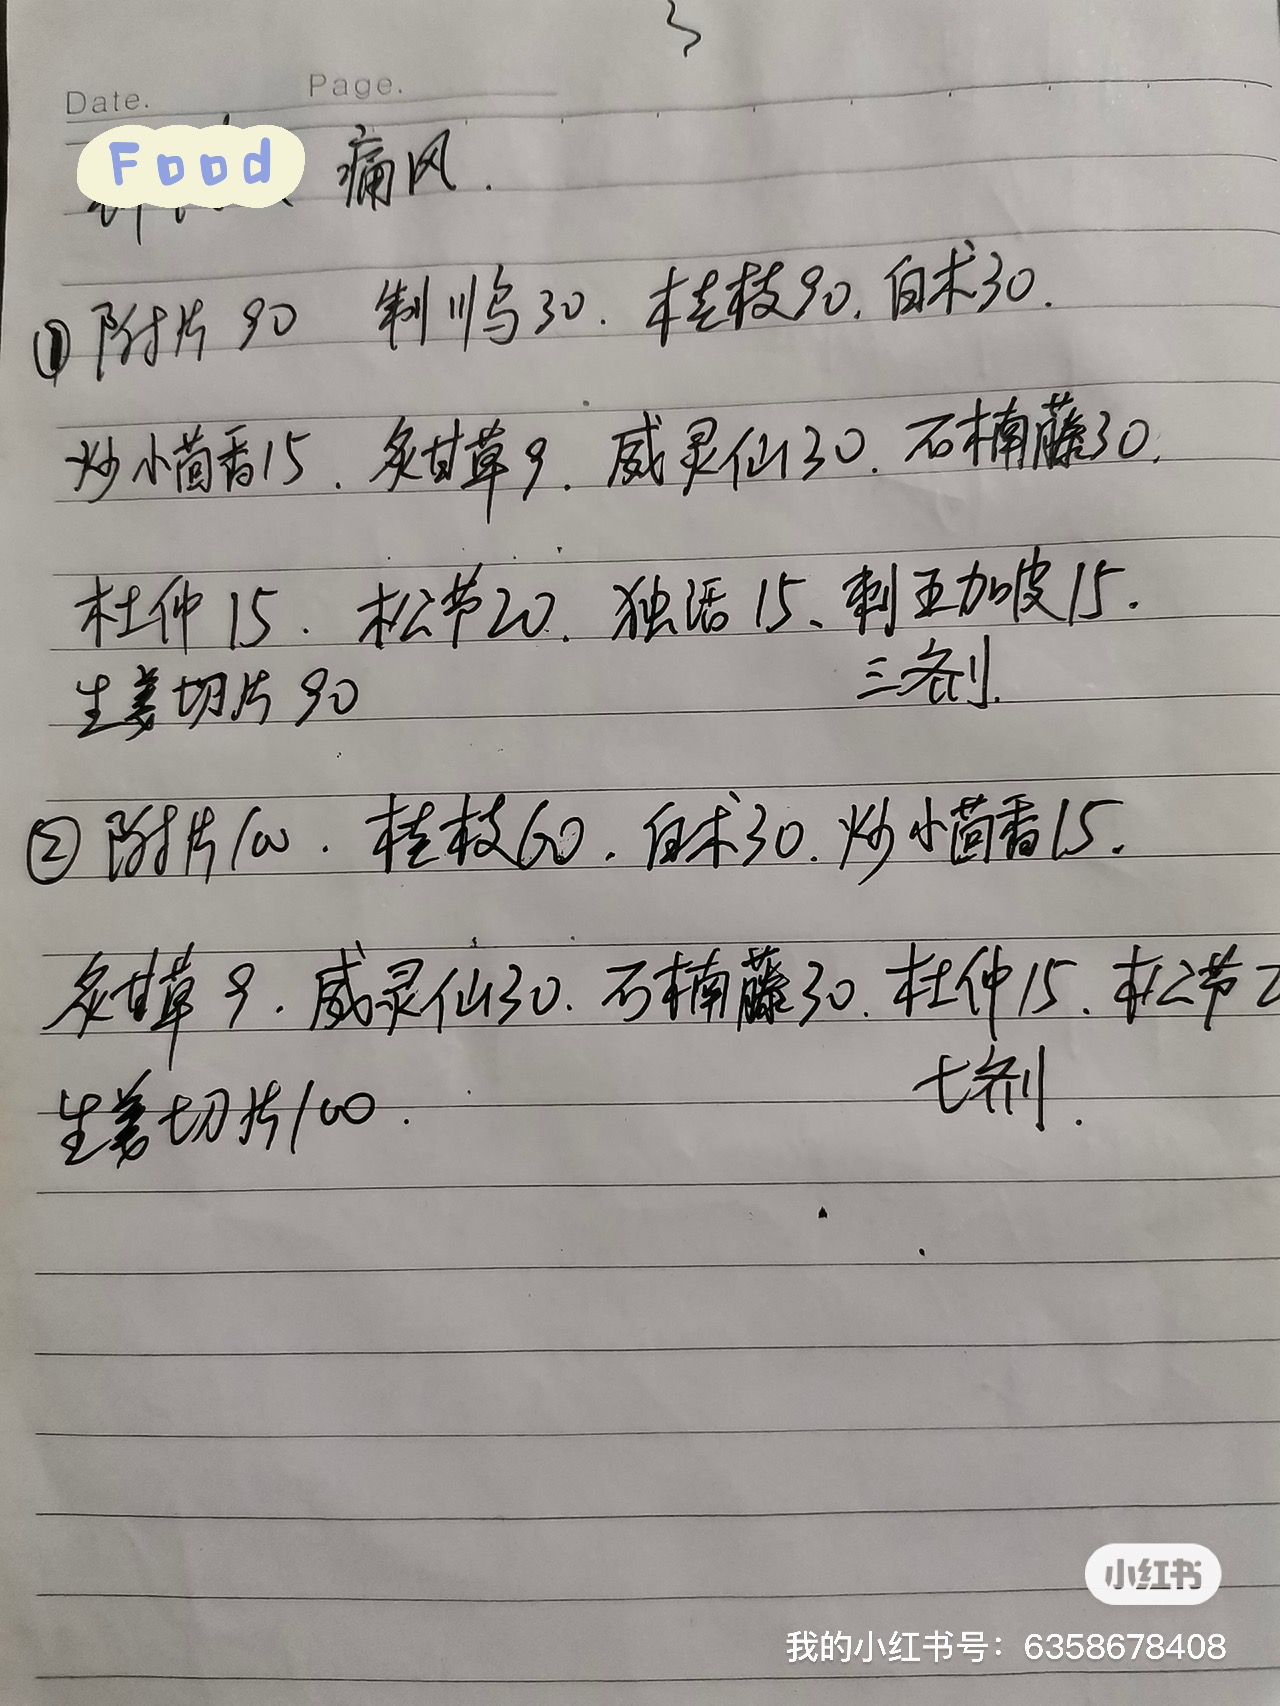 Date. Page.
Food 痛风.
① 附片 90 制川乌30. 桂枝90. 白术30.
炒小茴香15. 炙甘草9. 威灵仙30. 石楠藤30.
杜仲15. 松节20. 独活15、刺五加皮15.
生姜切片90 三剂.
② 附片100. 桂枝60. 白术30. 炒小茴香15.
炙甘草9. 威灵仙30. 石楠藤30. 杜仲15. 松节2
生姜切片100. 七剂.
小红书
我的小红书号：6358678408